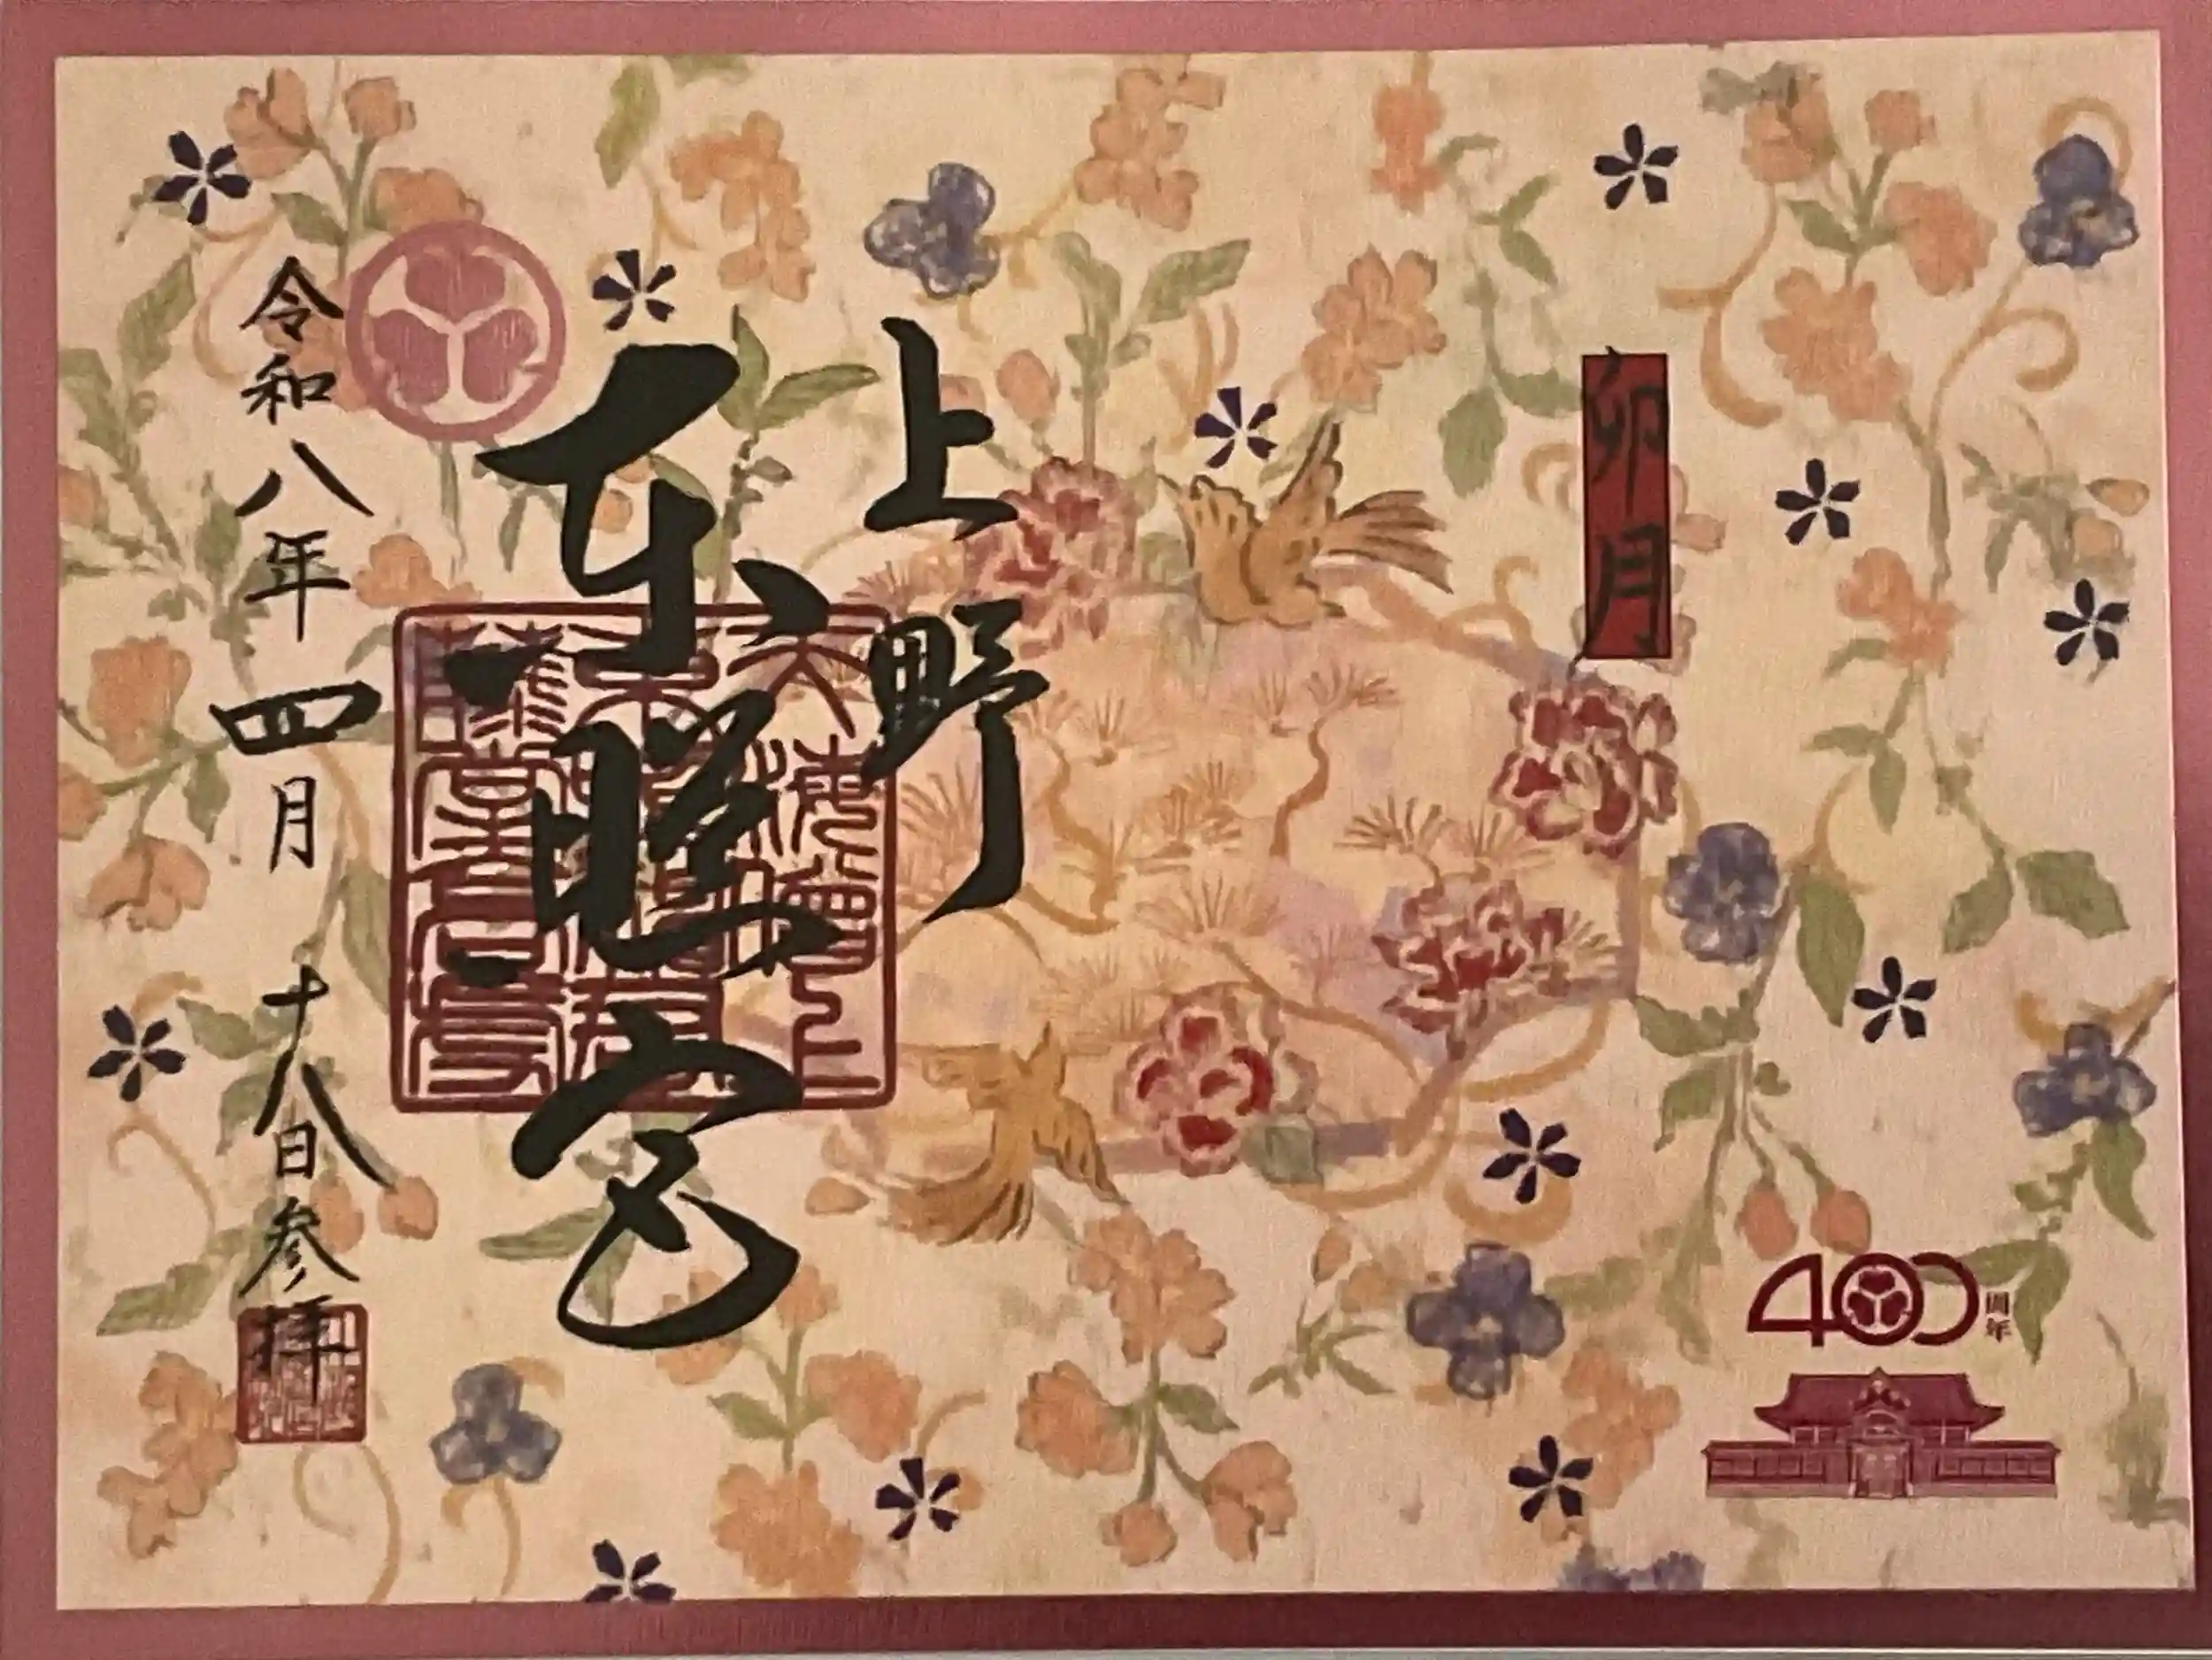 卯月
上野
東照宮
令和八年四月十八日参拝
400周年